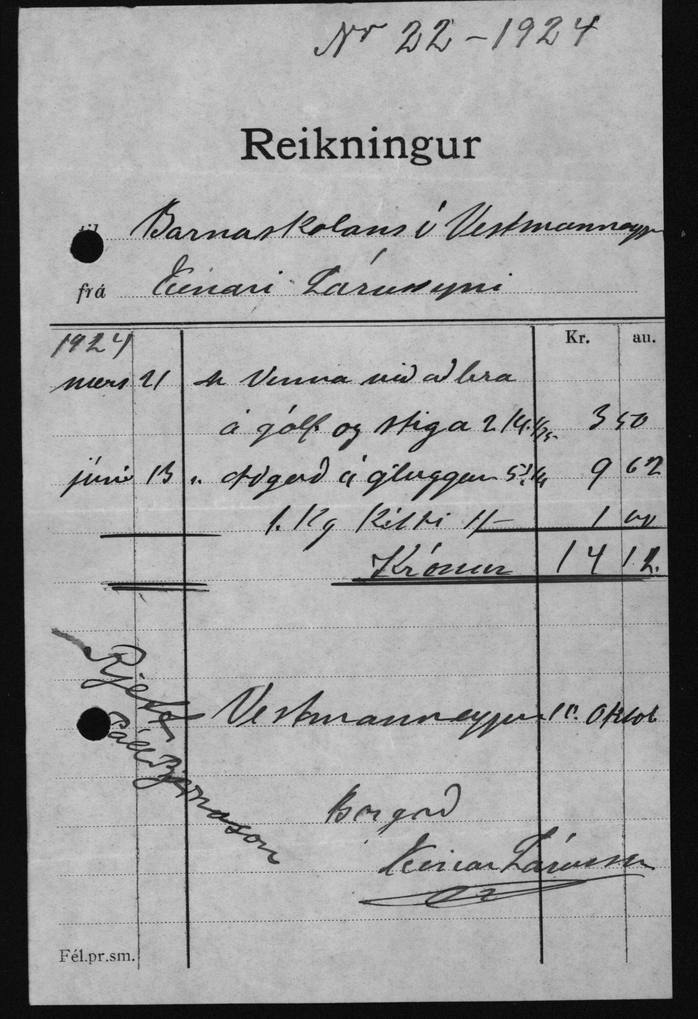 Nr 22-1924
Reikningur
til Barnaskolans í Vestmannaeyjum
frá Einari Lárussyni
Kr. au.
1924
mars 21 Vinna við að bera
á gólf og stiga 2 3 50
júní 13 " Aðgerð á gluggum 9 62
1. Kg Kítti 1/- 1 00
Krónur 14 12.
Rjett
Páll Bjarnason
Vestmannaeyjum 11. Oktob
Borgað
Einar Lárusson
Fél.pr.sm.